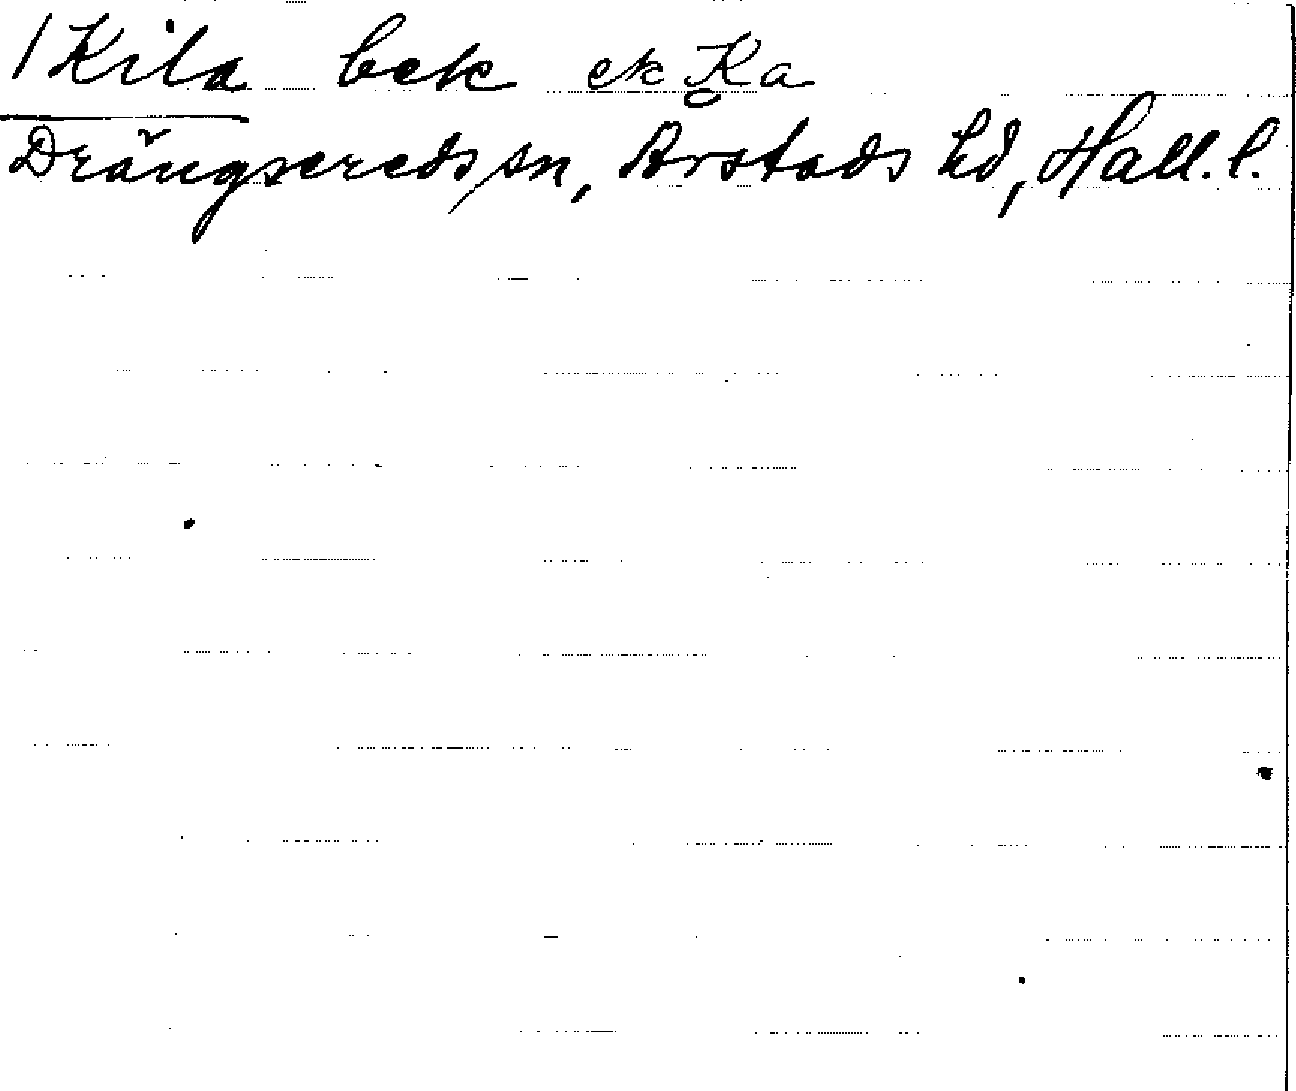 /Kila bek ek Ka
Drängsereds sn, Årstads hd, Hall. l.